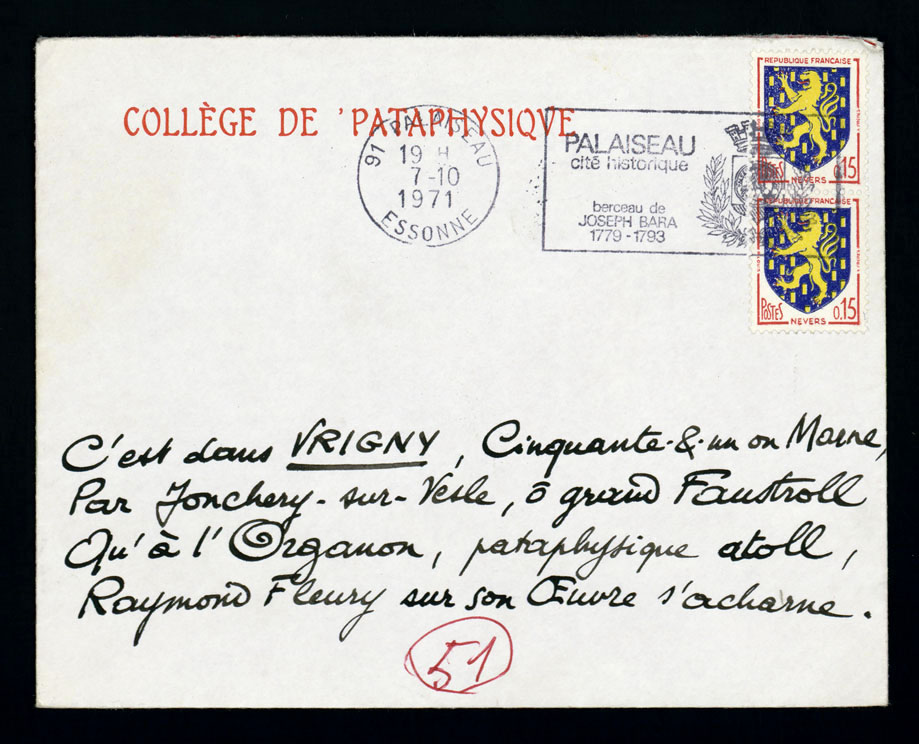 COLLÈGE DE 'PATAPHYSIQVE
91 PALAISEAU
19 H
7-10
1971
ESSONNE
PALAISEAU
cité historique
berceau de
JOSEPH BARA
1779-1793
REPUBLIQUE FRANÇAISE
POSTES 0,15
NEVERS
REPUBLIQUE FRANÇAISE
POSTES 0,15
NEVERS
C'est dans VRIGNY, Cinquante-&-un on Marne,
Par Jonchery-sur-Vesle, ô grand Faustroll
Qu'à l'Organon, pataphysique atoll,
Raymond Fleury sur son Œuvre s'acharne.
51